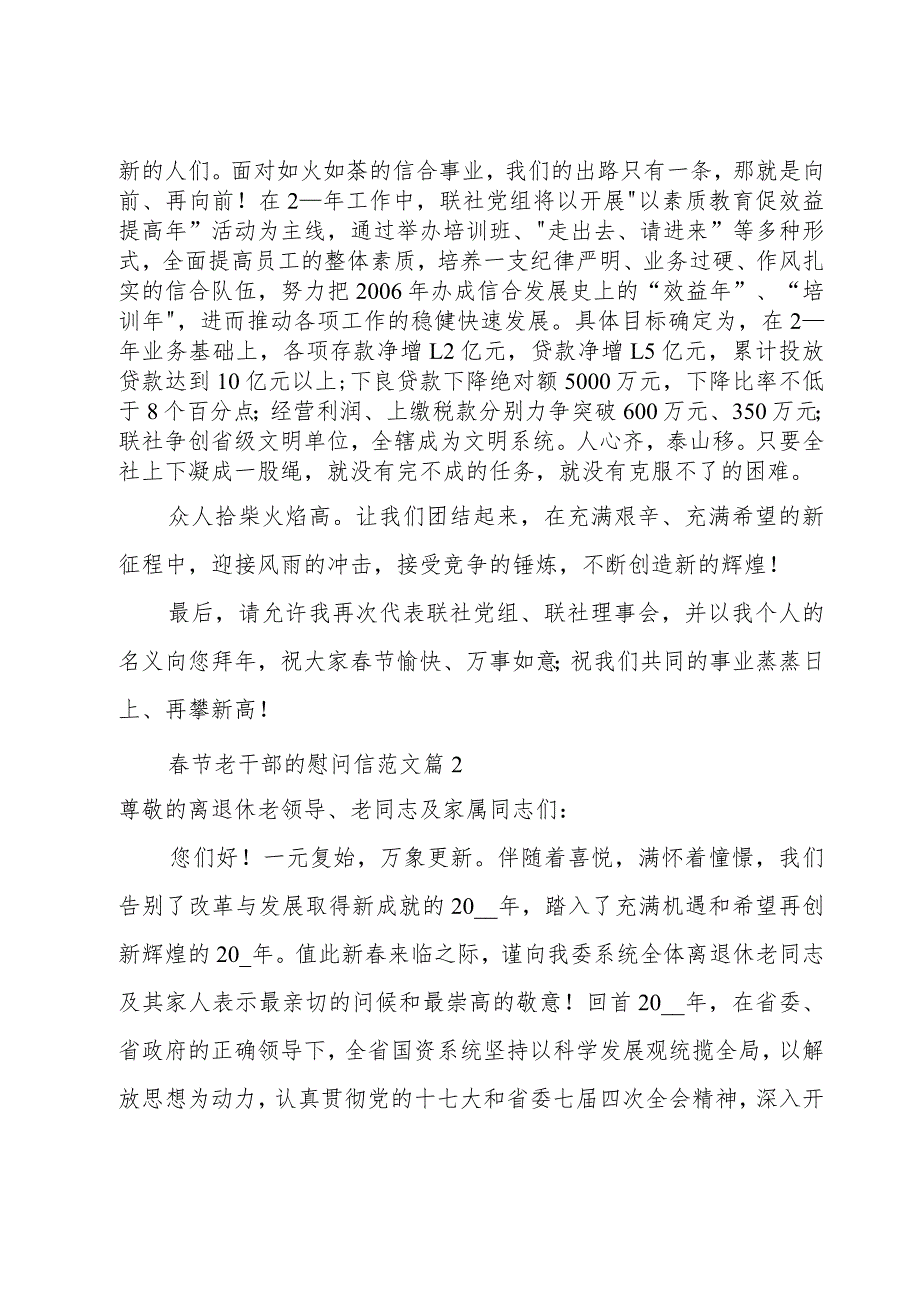 新的人们。面对如火如荼的信合事业，我们的出路只有一条，那就是向
前、再向前！在2—年工作中，联社党组将以开展"以素质教育促效益
提高年”活动为主线，通过举办培训班、"走出去、请进来”等多种形
式，全面提高员工的整体素质，培养一支纪律严明、业务过硬、作风扎
实的信合队伍，努力把2006年办成信合发展史上的“效益年”、“培
训年"，进而推动各项工作的稳健快速发展。具体目标确定为，在2—
年业务基础上，各项存款净增L2亿元，贷款净增L5亿元，累计投放
贷款达到10亿元以上；下良贷款下降绝对额5000万元，下降比率不低
于8个百分点；经营利润、上缴税款分别力争突破600万元、350万元；
联社争创省级文明单位，全辖成为文明系统。人心齐，泰山移。只要全
社上下凝成一股绳，就没有完不成的任务，就没有克服不了的困难。
众人拾柴火焰高。让我们团结起来，在充满艰辛、充满希望的新
征程中，迎接风雨的冲击，接受竞争的锤炼，不断创造新的辉煌！
最后，请允许我再次代表联社党组、联社理事会，并以我个人的
名义向您拜年，祝大家春节愉快、万事如意；祝我们共同的事业蒸蒸日
上、再攀新高！
春节老干部的慰问信范文篇2
尊敬的离退休老领导、老同志及家属同志们：
您们好！一元复始，万象更新。伴随着喜悦，满怀着憧憬，我们
告别了改革与发展取得新成就的20__年，踏入了充满机遇和希望再创
新辉煌的20_年。值此新春来临之际，谨向我委系统全体离退休老同志
及其家人表示最亲切的问候和最崇高的敬意！回首20__年，在省委、
省政府的正确领导下，全省国资系统坚持以科学发展观统揽全局，以解
放思想为动力，认真贯彻党的十七大和省委七届四次全会精神，深入开